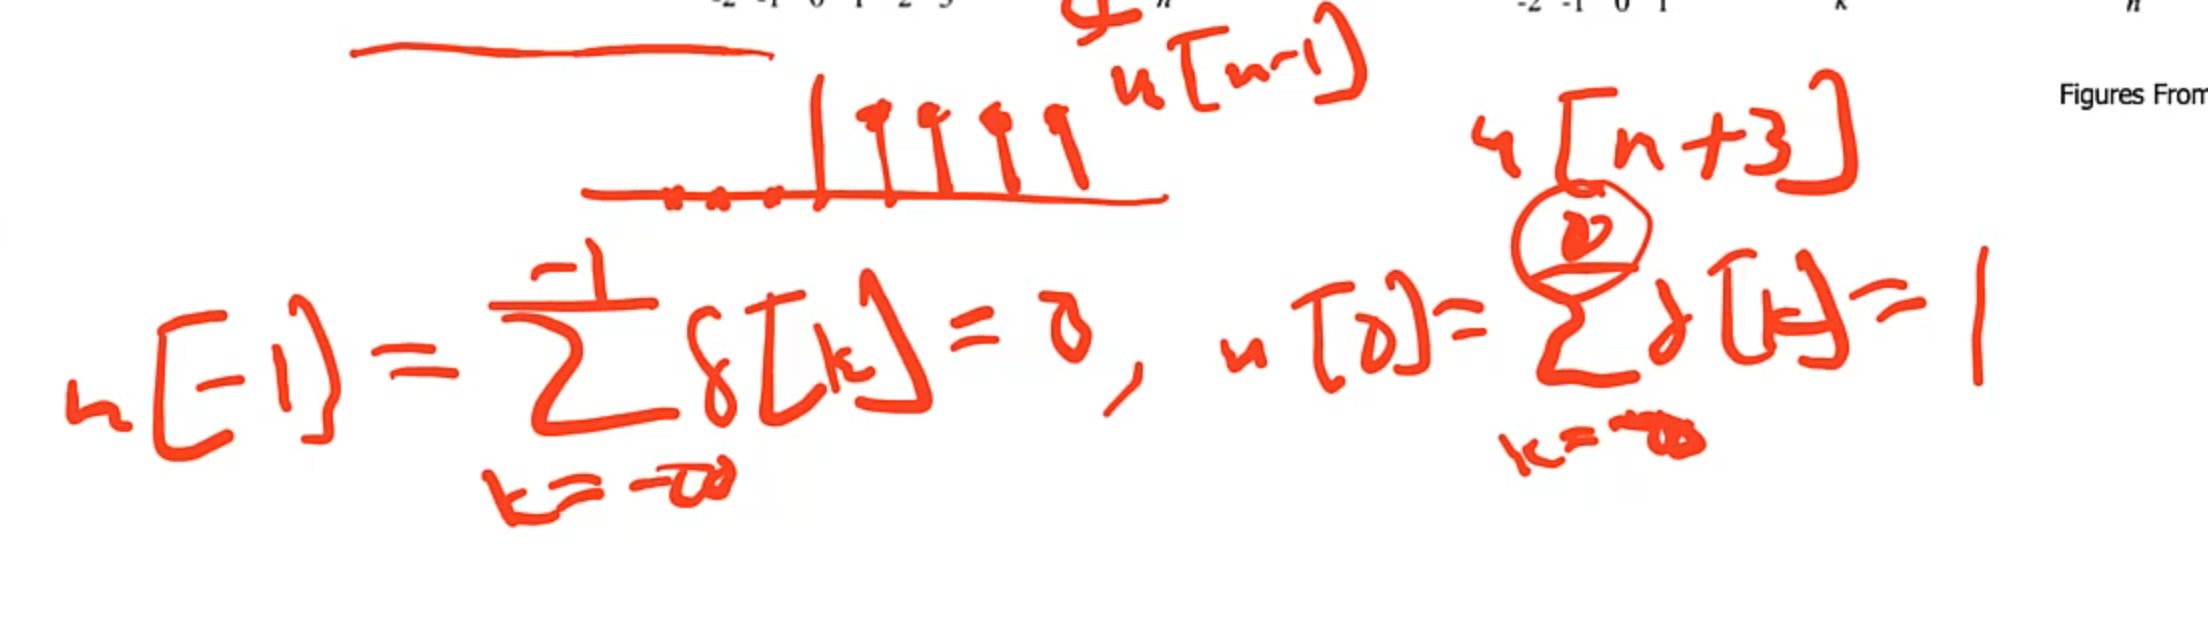 -2 -1 0 1 2 3 n -2 -1 0 1 k n
u[n-1]
u[n+3]
Figures From
u[-1] = \sum_{k=-∞}^{-1} δ[k] = 0, u[0] = \sum_{k=-∞}^{0} δ[k] = 1